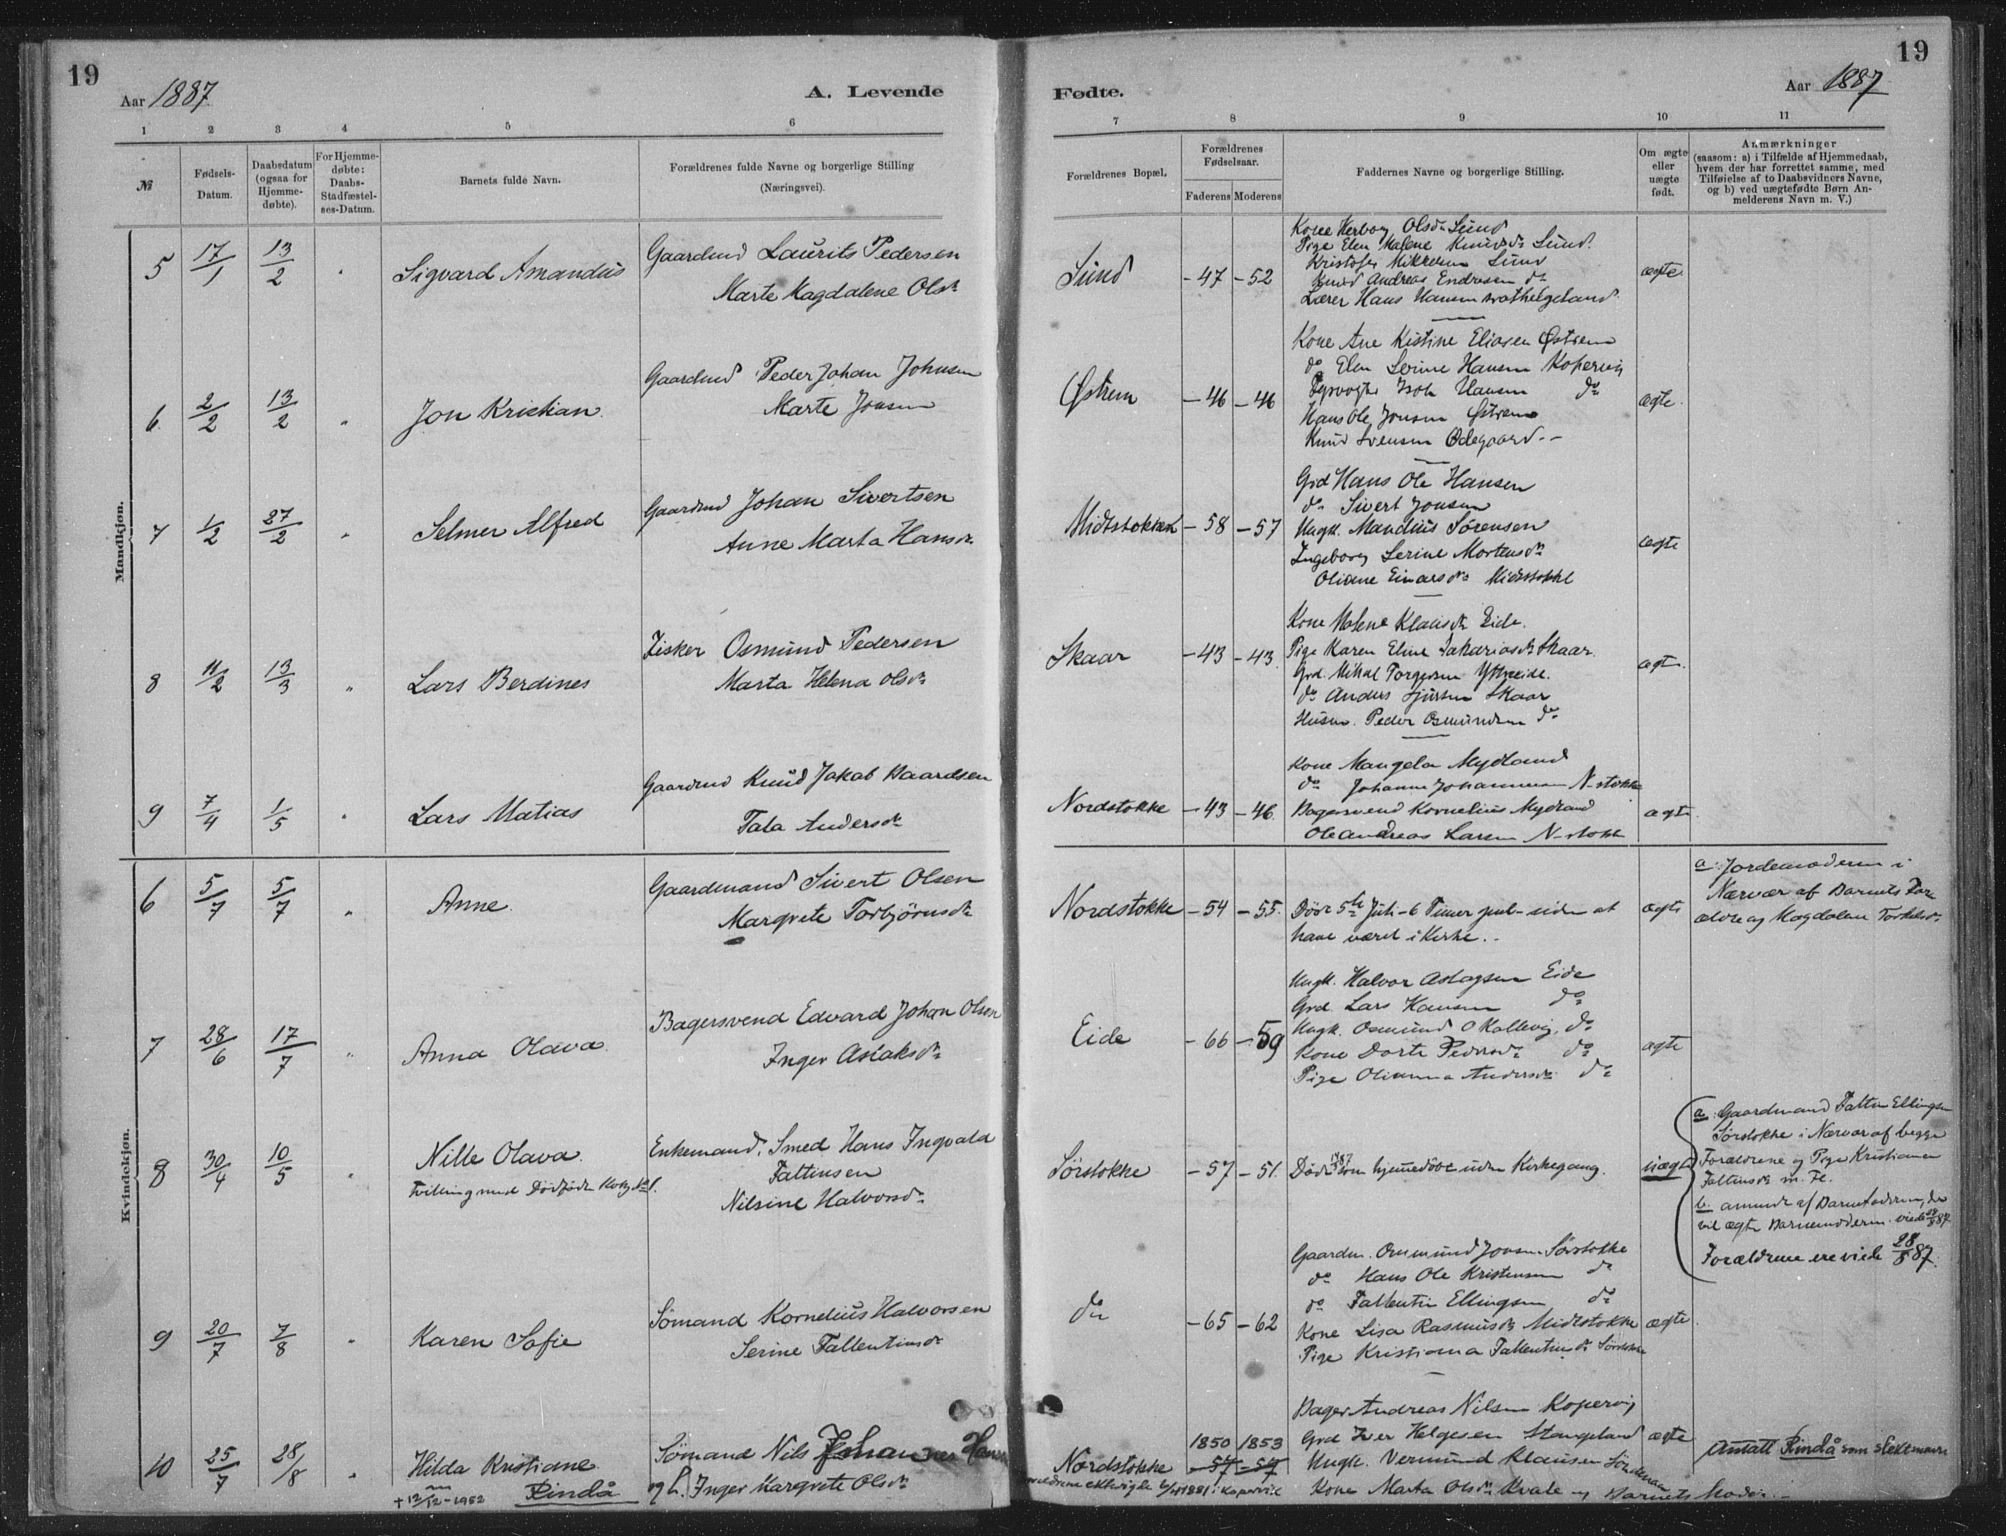 19
Aar 1887.
A. Levende
1 2 3 4 5 6
№
Fødsels-
Datum.
Daabsdatum
(ogsaa for
Hjemme-
døbte).
For Hjemme-
døbte:
Daabs-
Stadfæstel-
ses-Datum.
Barnets fulde Navn.
Forældrenes fulde Navne og borgerlige Stilling
(Næringsvei).
Mandkjøn.
5 17/1 13/2 " Sigvard Amandus
Gaardmd Laurits Pedersen
Marte Magdalene Olsdr
6 2/2 13/2 " Jon Kristian.
Gaardmd Peder Johan Johnsen
Marte Jonsen
7 1/2 27/2 " Selmer Alfred
Gaardmd Johan Sivertsen
Anne Marta Hansdr
8 11/2 13/3 " Lars Berdines
Fisker Osmund Pedersen
Marta Helena Olsdr
9 7/4 1/5 " Lars Matias
Gaardmd Knud Jakob Baardsen
Tala Andersdr
Kvindekjøn.
6 5/7 5/7 " Anne.
Gaardmand Sivert Olsen
Margrete Torbjørnsdr
7 28/6 17/7 " Anna Olava
Bagersvend Edvard Johan Olsen
Inger Aslaksdr
8 30/4 10/5 " Nille Olava.
Tvilling med Dødfødte
Enkemand, Smed Hans Ingvald
Faltinsen
Nilsine Halvorsdr
9 20/7 7/8 " Karen Sofie
Sømand Kornelius Halvorsen
Serine Fallentinsdr
10 25/7 28/8 " Hilda Kristiane
Rindå
+ 12/12-1952
Sømand Nils Johannes Hansen
og h. Inger Margrete Olsdr
19
Aar 1887
Fødte.
7 8 9 10 11
Forældrenes Bopæl.
Forældrenes
Fødselsaar.
Faderens Moderens
Faddernes Navne og borgerlige Stilling.
Om ægte
eller
uægte
født.
Anmærkninger
(saasom: a) i Tilfælde af Hjemmedaab,
hvem der har forrettet samme, med
Tilføielse af to Daabsvidners Navne,
og b) ved uægtefødte Børn An-
melderens Navn m. V.)
Sund -47 -52 ægte
Kone Herborg Olsdr Sund
Pige Elen Malene Knudsdr Sund.
Kristofer Mikkelsen Sund
Knud Andreas Endresen do
Lærer Hans Hansen
Østrem -46 -46 ægte.
Kone Ane Kistine Eliasen Østrem
do Elen Serine Hansen Kopervig
Fyrvogter Hansen do
Hans Ole Jonsen Østrem
Knud Svensen Ødegaard.-
Midtstokke -58 -57 ægte
Grd Hans Ole Hansen
do Sivert Jonsen
Ungk. Mandius Sørensen
Ingeborg Serine Mortensdr
Oliane Einarsdr Midtstokke
Skaar -43 -43. ægt.
Kone Malene Klausdr Eide.
Pige Karen Eline Sakariasdr Skaar.
Grd. Mikal Torgersen Ytreeide.
do Anders Sjursen Skaar
Husm. Peder Osmundsen do
Nordstokke -43 -46. ægte
Kone Mangela Mydland
do Johanne Johannesen N-stokke
Bagersvend Kornelius Mydland
Ole Andreas Larsen N-stokke
Nordstokke -54 -55. ægte
Død 5te Juli - 6 Timer siden at
have været i Kirke.-
a. Jordemoderen i
Nærvær af Barnets For
ældre og Magdalene Torkelsdr
Eide -66 -59 ægte
Ungk. Halvor Aslagsen Eide
Grd. Lars Hansen do
Ungk. Osmund O Kallevig, do
Kone Dorte Pedersdr do
Pige Olianna Andersdr do
Sørstokke -57 -51. uægte
Døde som hjemmedøbt uden Kirkegang.
a. Gaardmand Faltin Ellingsen
Sørstokke i Nærvær af begge
Forældrene og Pige Kristianne
Faltinsdr m. Fl.
b. anmeldt af Barnefaderen, der
vil ægte Barnemoderen. viede 28/8 87.
Forældrene ere viede 28/8 87.
do -65 -62 ægte
Gaardm. Osmund Jonsen Sørstokke
do Hans Ole Kristensen do
do Fallentin Ellingsen do
Kone Lisa Rasmusdr Midtstokke
Pige Kristianna Fallentinsdr Sørstokke
Nordstokke 1850 1853 ægte
-57 -57
Bager Andreas Nilsen Kopervig
Grd Iver Helgesen Stangeland
Ungk. Vermund Klausen
Kone Marta Olsdr Kvale og Barnets Moder.-
Antatt Rindå som slektsnavn